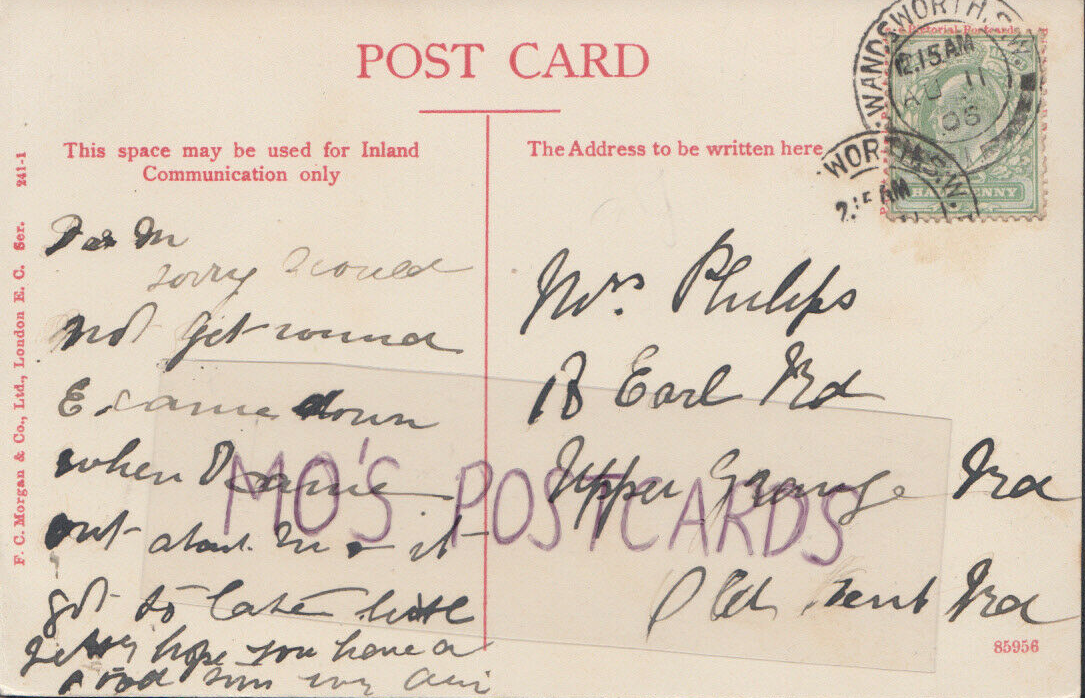 POST CARD
This space may be used for Inland
Communication only
The Address to be written here
Pictorial Postcards
WANDSWORTH. S.W.
12.15 AM
AU 11
06
WORTH. S.W.
2.15 AM
HALFPENNY
F. C. Morgan & Co., Ltd., London E. C. Ser. 241-1
Dear M
sorry I could
not get round
E. came down
when I came
out about M & it
got to late
hope you have a
good
Mrs Philips
18 Earl Rd
Upper Grange Rd
Old Kent Rd
MO'S POSTCARDS
85956